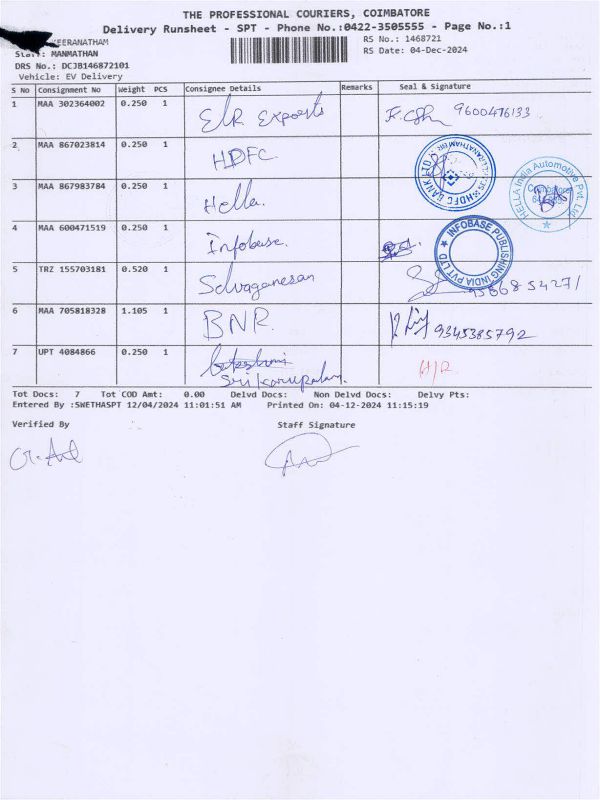 THE PROFESSIONAL COURIERS, COIMBATORE
Delivery Runsheet - SPT - Phone No.:0422-3505555 - Page No.:1
KEERANATHAM
RS No.: 1468721
Staff: MANMATHAN
RS Date: 04-Dec-2024
DRS No.: DCJB146872101
Vehicle: EV Delivery
S No Consignment No Weight PCS Consignee Details Remarks Seal & Signature
1 MAA 302364002 0.250 1 ELR Exports 9600476133
2 MAA 867023814 0.250 1 HDFC HDFC BANK LTD
3 MAA 867983784 0.250 1 Hella. HELLA India Automotive Pvt. Ltd. Coimbatore
4 MAA 600471519 0.250 1 Infobase. INFOBASE PUBLISHING INDIA PVT LTD
5 TRZ 155703181 0.520 1 Selvaganesan 95668 54271
6 MAA 705818328 1.105 1 BNR 9345385792
7 UPT 4084866 0.250 1 Sri Karupalam. H/R
Tot Docs: 7 Tot COD Amt: 0.00 Delvd Docs: Non Delvd Docs: Delvy Pts:
Entered By :SWETHASPT 12/04/2024 11:01:51 AM Printed On: 04-12-2024 11:15:19
Verified By Staff Signature